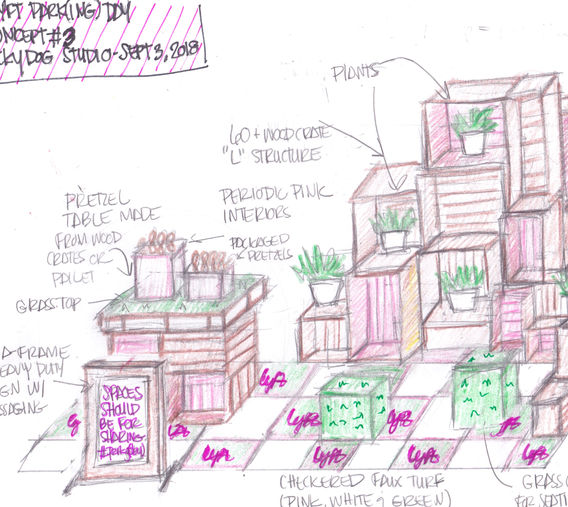 YFT PARK(ING) DAY
ONCEPT #3
CKY DOG STUDIO - SEPT 3, 2018
PLANTS
60+ WOOD CRATE
"L" STRUCTURE
PRETZEL
TABLE MADE
FROM WOOD
CRATES OR
PALLET
PERIODIC PINK
INTERIORS
PACKAGED
PRETZELS
GRASS TOP
A-FRAME
EAVY DUTY
GN W/
SSAGING
SPACES
SHOULD
BE FOR
SHARING
lyft
lyft
lyft
lyft
lyft
lyft
CHECKERED FAUX TURF
(PINK, WHITE & GREEN)
GRASS C
FOR SEATI